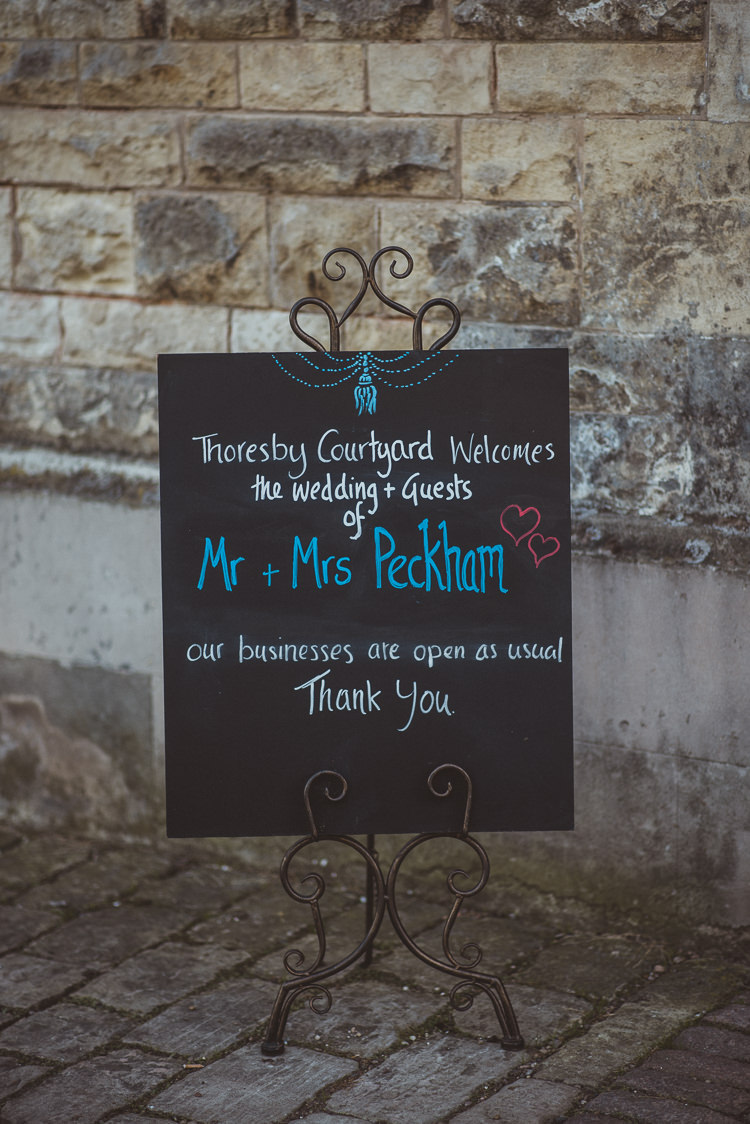 Thoresby Courtyard Welcomes
the wedding + Guests
of
Mr + Mrs Peckham
our businesses are open as usual
Thank You.